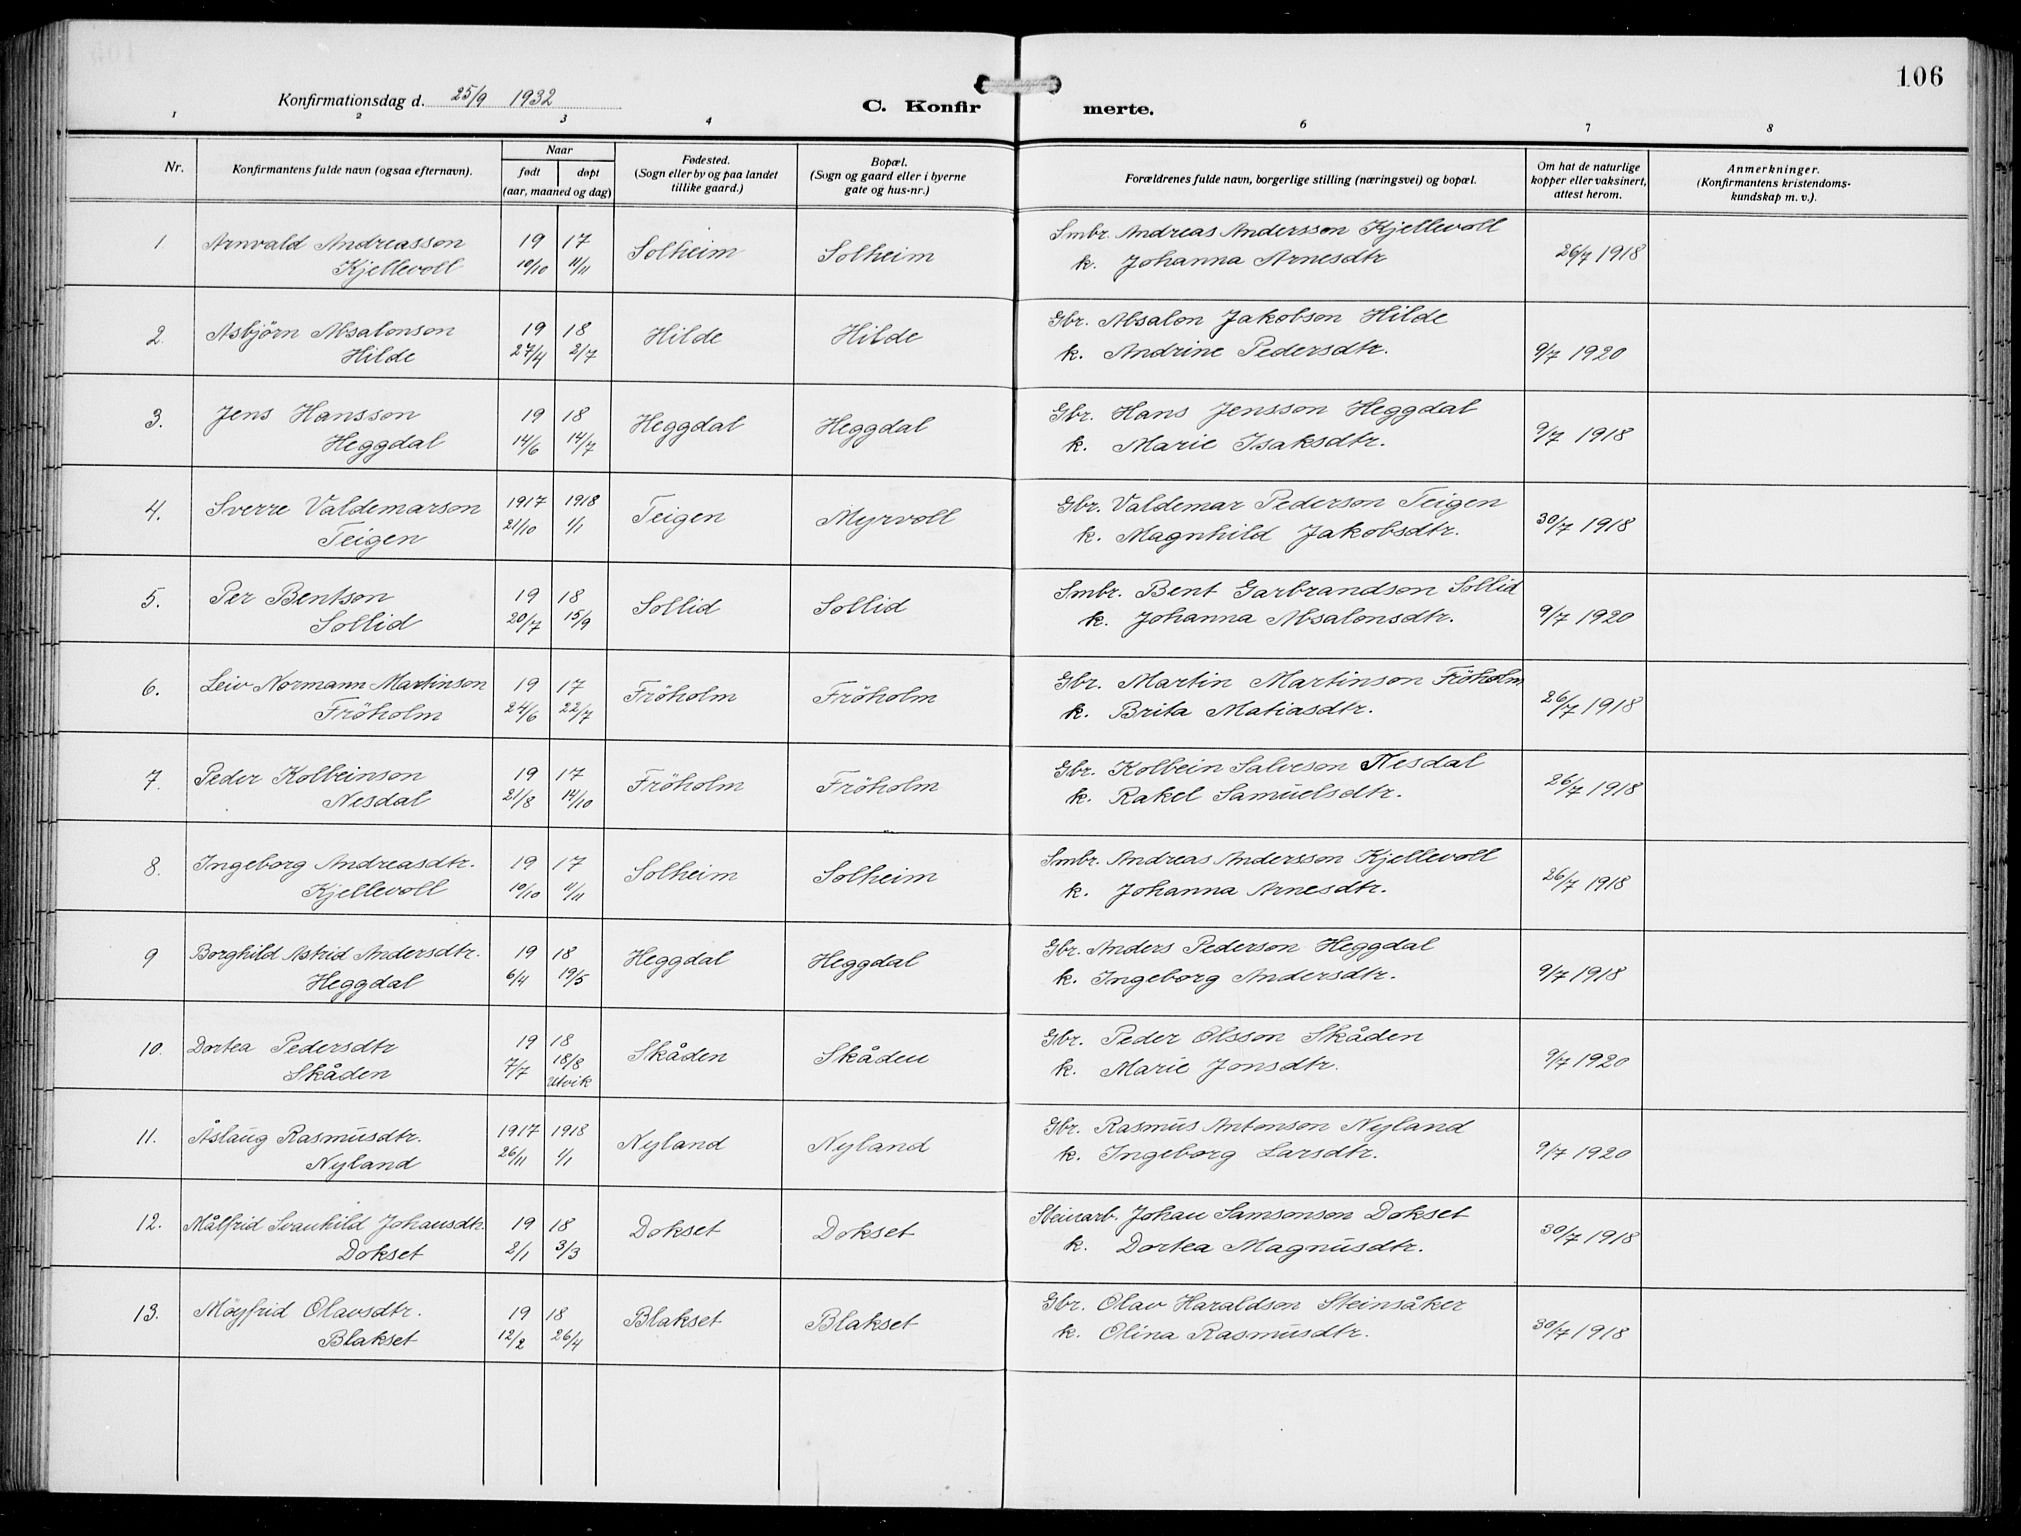 106
Konfirmationsdag d. 25/9 1932
C. Konfir merte.
1 2 3 4 6 7 8
Nr.
Konfirmantens fulde navn (ogsaa efternavn).
Naar
født døpt
(aar, maaned og dag)
Fødested.
(Sogn eller by og paa landet
tillike gaard.)
Bopæl.
(Sogn og gaard eller i byerne
gate og hus-nr.)
Forældrenes fulde navn, borgerlige stilling (næringsvei) og bopæl.
Om hat de naturlige
kopper eller vaksinert,
attest herom.
Anmerkninger.
(Konfirmantens kristendoms-
kundskap m. v.).
1. Arnvald Andreasson 19 17 Solheim Solheim Smbr. Andreas Andersson Kjellevoll 26/7 1918
Kjellevoll 10/10 11/11 k. Johanna Arnesdtr
2. Asbjørn Absalonson 19 18 Hilde Hilde Gbr. Absalon Jakobson Hilde
Hilde 27/4 2/7 k. Andrine Pedersdtr. 9/7 1920
3. Jens Hansson 19 18 Heggdal Heggdal Gbr. Hans Jensson Heggdal 9/7 1918
Heggdal 14/6 14/7 k. Marie Isaksdtr.
4. Sverre Valdemarson 1917 1918 Teigen Myrvoll Gbr. Valdemar Pederson Teigen 30/7 1918
Teigen 21/10 1/1 k. Magnhild Jakobsdtr.
5. Per Bentson 19 18 Sollid Sollid Smbr. Bent Garbrandson Sollid
Sollid 20/7 15/9 k. Johanna Absalonsdtr. 9/7 1920
6. Leiv Normann Martinson 19 17 Fröholm Fröholm Gbr. Martin Martinson Fröholm 26/7 1918
Fröholm 24/6 22/7 k. Brita Matiasdtr.
7. Peder Kolbeinson 19 17 Fröholm Fröholm Gbr. Kolbein Salveson Nesdal 26/7 1918
Nesdal 21/8 14/10 k. Rakel Samuelsdtr.
8. Ingeborg Andreasdtr. 19 17 Solheim Solheim Smbr. Andreas Andersson Kjellevoll 26/7 1918
Kjellevoll 10/10 11/11 k. Johanna Arnesdtr.
9 Borghild Astrid Andersdtr. 19 18 Heggdal Heggdal Gbr. Anders Pederson Heggdal
Heggdal 6/4 19/5 k. Ingeborg Andersdtr. 9/7 1918
10. Dortea Pedersdtr 19 18 Skåden Skåden Gbr. Peder Olsson Skåden 9/7 1920
Skåden 7/7 18/8 k. Marie Jonsdtr.
Utvik
11. Åslaug Rasmusdtr. 1917 1918 Nyland Nyland Gbr. Rasmus Antonson Nyland
Nyland 26/11 1/1 k. Ingeborg Larsdtr. 9/7 1920
12. Målfrid Svanhild Johansdtr. 19 18 Dokset Dokset Steinarb. Johan Samsonson Dokset 30/7 1918
Dokset 2/1 3/3 k. Dortea Magnusdtr.
13. Möyfrid Olavsdtr. 19 18 Blakset Blakset Gbr. Olav Haraldson Steinsåker
Blakset 12/2 26/4 k. Olina Rasmusdtr. 30/7 1918